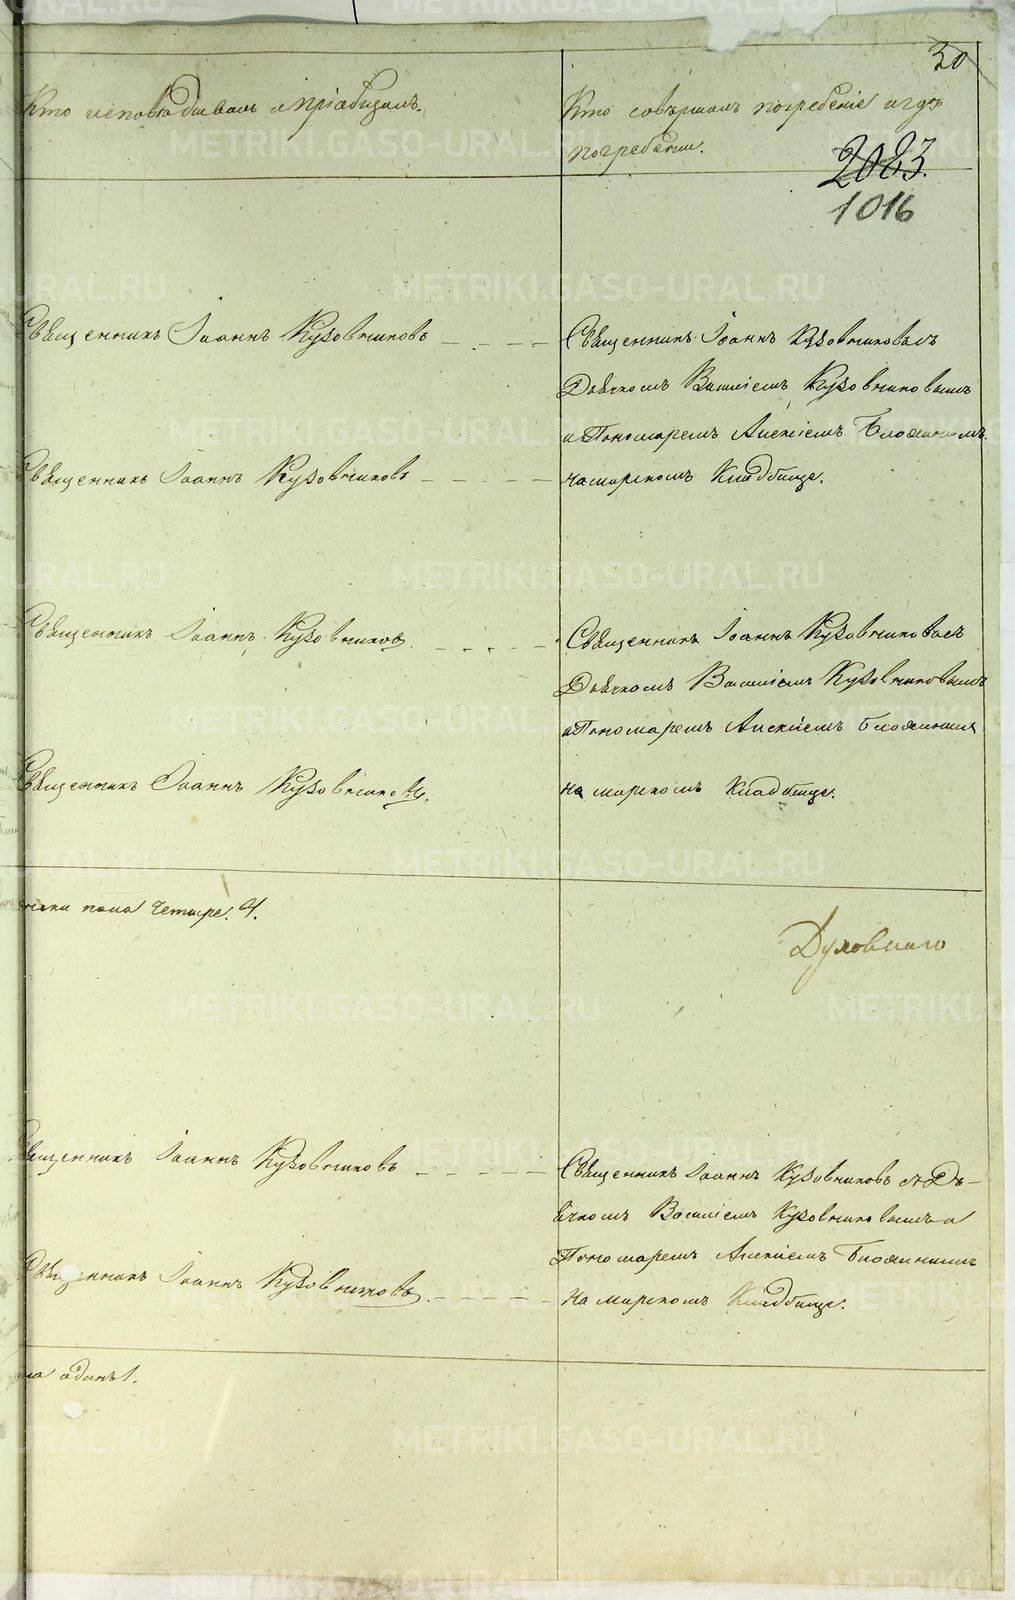 30
Кто исповѣдывалъ и пріобщалъ.
Кто совершалъ погребеніе и гдѣ
погребены.
2083.
1016
Священникъ Іоаннъ Кузовниковъ
Священникъ Іоаннъ Кузовниковъ съ
Дьячкомъ Василіемъ Кузовниковымъ
и Пономаремъ Алексіемъ
Священникъ Іоаннъ Кузовниковъ
на мирскомъ Кладбище.
Священникъ Іоаннъ Кузовниковъ
Священникъ Іоаннъ Кузовниковъ съ
Дьячкомъ Василіемъ Кузовниковымъ
и Пономаремъ Алексіемъ
Священникъ Іоаннъ Кузовниковъ.
на мирскомъ Кладбище.
пола Четыре. 4.
Духовнаго
Священникъ Іоаннъ Кузовниковъ
Священникъ Іоаннъ Кузовниковъ съ Дь-
ячкомъ Василіемъ Кузовниковымъ и
Пономаремъ Алексіемъ
Священникъ Іоаннъ Кузовниковъ.
на мирскомъ Кладбище.
одинъ 1.
METRIKI.GASO-URAL.RU